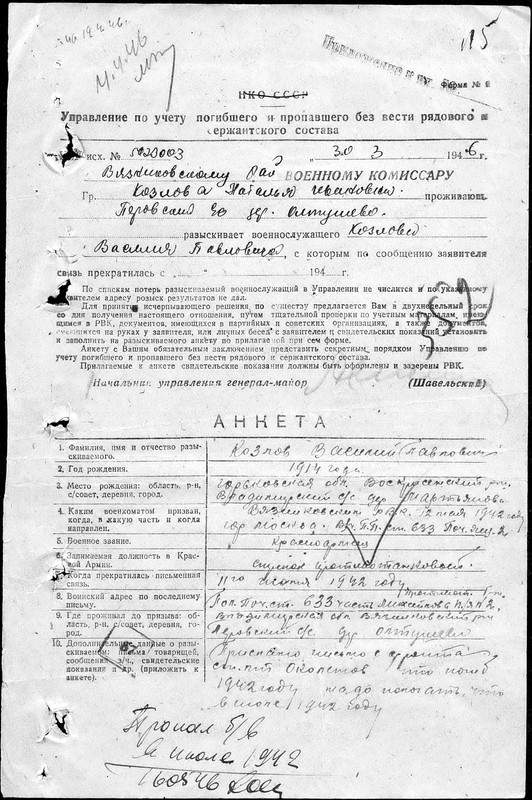 4.4.46
115
Форма №
НКО СССР
Управление по учету погибшего и пропавшего без вести рядового и
сержантского состава
исх. № 30 3 1946 г.
Вязниковскому Рай ВОЕННОМУ КОМИССАРУ
Гр. Козлова Наталья проживающ.
Перовский с/с дер. Олтушево.
разыскивает военнослужащего Козлова
Василия Павловича, с которым по сообщению заявителя
связь прекратилась с 194 г.
По спискам потерь разыскиваемый военнослужащий в Управлении не числится и по указанному
заявителем адресу розыск результатов не дал.
Для принятия исчерпывающего решения, по существу предлагается Вам в двухнедельный срок
со дня получения настоящего отношения, путем тщательной проверки по учетным имею-
щимся в РВК, документов, имеющихся в партийных и советских организациях, а также документов,
имеющихся на руках у заявителя, или личных бесед с заявителем и свидетельских показаний установить
и заполнить на разыскиваемого анкету по прилагаемой при сем форме.
Анкету с Вашим обязательным заключением представить секретным, порядком Управлению по
учету погибшего и пропавшего без вести рядового и сержантского состава.
Прилагаемые к анкете свидетельские показания должны быть оформлены и заверены РВК.
Начальник управления генерал-майор (Шавельский)
АНКЕТА
1. Фамилия, имя и отчество разы- Козлов Василий Павлович
скиваемого.
2. Год рождения. 1914 года.
3. Место рождения: область, р-н, Горьковская обл. Воскресенский р-н
с/совет, деревня, город. Владимирский с/с дер. Мартьяново
4. Каким военкоматом призван, Вязниковский РВК. 12 мая 1942 г.
когда, в какую часть и когда гор Москва. ст. 633 Поч. ящ. 2.
направлен.
5. Военное звание. Красноармеец
6. Занимаемая должность в Крас-
ной Армии.
7. Когда прекратилась письменная 11го июля 1942 году
связь.
8. Воинский адрес по последнему Пол. Поч. ст. 633 часть
письму.
9. Где проживал до призыва: об- Владимирская обл. Вязниковский р-н
ласть, р-н, с/совет, деревня, го- Перовский с/с дер Олтушево
род.
10. Дополнительные данные о разы- Прислано письмо с фронта
скиваемом: письма товарищей,
сообщения з/ч, свидетельские 1942 году надо полагать, что
показания и др. (приложить к в июле 1942 году
анкете).
Пропал б/в
в июле 1942